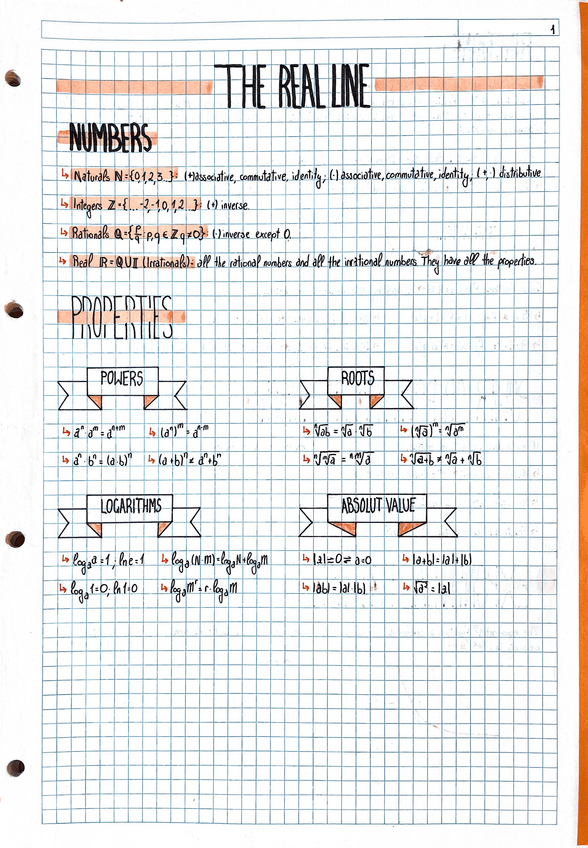 1
THE REAL LINE
NUMBERS
↳ Naturals ℕ={0,1,2,3...}: (+)associative, commutative, identity; (·) associative, commutative, identity, (+,·) distributive
↳ Integers ℤ={...-2,-1,0,1,2...}: (+) inverse.
↳ Rationals ℚ={p/q : p,q ∈ ℤ q≠0}: (·) inverse except 0.
↳ Real ℝ=ℚ∪𝕀 (Irrationals): all the rational numbers and all the irrational numbers. They have all the properties.
PROPERTIES
POWERS
↳ aⁿ·aᵐ = aⁿ⁺ᵐ ↳ (aⁿ)ᵐ = aⁿ·ᵐ
↳ aⁿ·bⁿ = (a·b)ⁿ ↳ (a+b)ⁿ ≠ aⁿ+bⁿ
ROOTS
↳ ⁿ√ab = ⁿ√a·ⁿ√b ↳ (ⁿ√a)ᵐ = ⁿ√aᵐ
↳ ⁿ√ᵐ√a = ⁿᵐ√a ↳ ⁿ√a+b ≠ ⁿ√a + ⁿ√b
LOGARITHMS
↳ logₐa=1; ln e=1 ↳ logₐ(N·M)=logₐN+logₐM
↳ logₐ1=0; ln 1=0 ↳ logₐmʳ=r·logₐM
ABSOLUT VALUE
↳ |a|=0 ⇌ a=0 ↳ |a+b|=|a|+|b|
↳ |ab|=|a|·|b| ↳ √a² = |a|